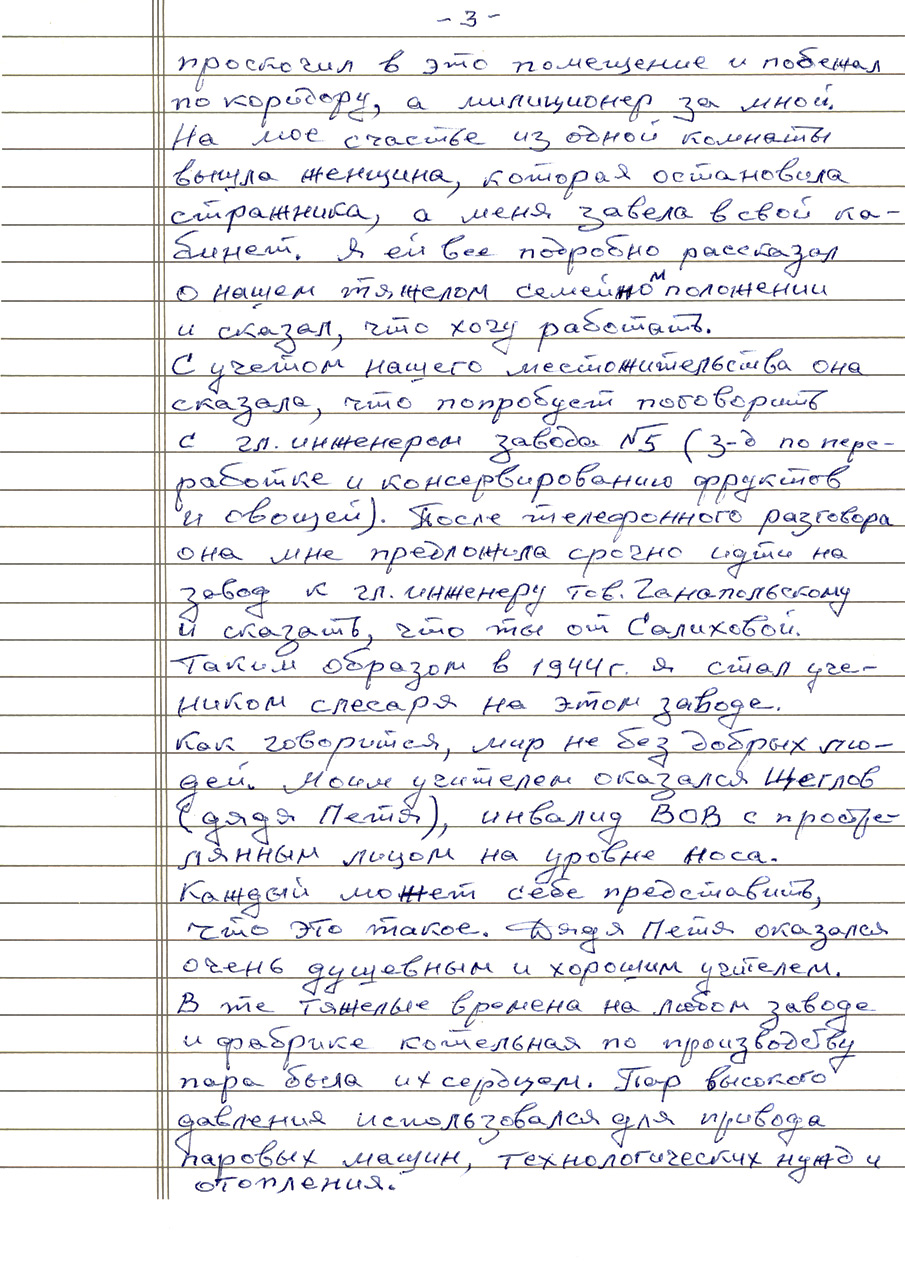 - 3 -
проскочил в это помещение и побежал
по коридору, а милиционер за мной.
На мое счастье из одной комнаты
вышла женщина, которая остановила
стражника, а меня завела в свой ка-
бинет. Я ей все подробно рассказал
о нашем тяжелом семейном положении
и сказал, что хочу работать.
С учетом нашего местожительства она
сказала, что попробует поговорить
с гл. инженером завода №5 (3-д по пере-
работке и консервированию фруктов
и овощей). После телефонного разговора
она мне предложила срочно идти на
завод к гл. инженеру тов. Ганапольскому
и сказать, что ты от Салиховой.
Таким образом в 1944 г. я стал уче-
ником слесаря на этом заводе.
Как говорится, мир не без добрых лю-
дей. Моим учителем оказался Щеглов
(дядя Петя), инвалид ВОВ с простре-
лянным лицом на уровне носа.
Каждый может себе представить,
что это такое. Дядя Петя оказался
очень душевным и хорошим учителем.
В те тяжелые времена на любом заводе
и фабрике котельная по производству
пара была их сердцем. Пар высокого
давления использовался для привода
паровых машин, технологических нужд и
отопления.